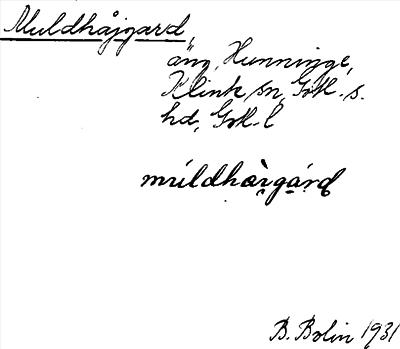 Muldhåjgard,
äng, Hunninge,
Klinte sn, Gotl. s.
hd, Gotl. l
B. Bolin 1931